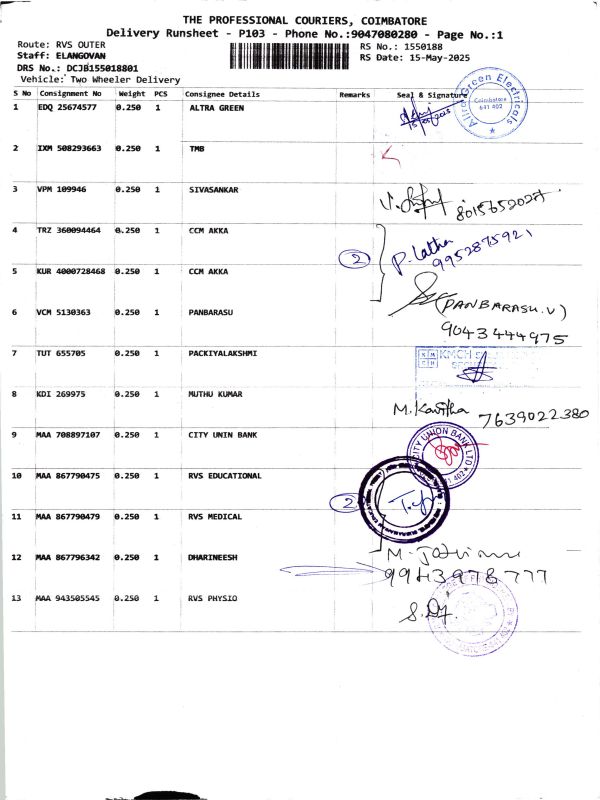 THE PROFESSIONAL COURIERS, COIMBATORE
Delivery Runsheet - P103 - Phone No.:9047080280 - Page No.:1
Route: RVS OUTER
RS No.: 1550188
Staff: ELANGOVAN
RS Date: 15-May-2025
DRS No.: DCJB155018801
Vehicle: Two Wheeler Delivery
S No Consignment No Weight PCS Consignee Details Remarks Seal & Signature
1 EDQ 25674577 0.250 1 ALTRA GREEN
Altra Green Electricals
Coimbatore
641 402
2 IXM 508293663 0.250 1 TMB
3 VPM 109946 0.250 1 SIVASANKAR
8015652027
4 TRZ 360094464 0.250 1 CCM AKKA
2 P. Latha
9952875921
5 KUR 4000728468 0.250 1 CCM AKKA
(PANBARASU.V)
6 VCM 5130363 0.250 1 PANBARASU
9043444975
7 TUT 655705 0.250 1 PACKIYALAKSHMI
KMCH
8 KDI 269975 0.250 1 MUTHU KUMAR
M. Kavitha 7639022380
9 MAA 708897107 0.250 1 CITY UNIN BANK
CITY UNION BANK LTD
10 MAA 867790475 0.250 1 RVS EDUCATIONAL
2
11 MAA 867790479 0.250 1 RVS MEDICAL
12 MAA 867796342 0.250 1 DHARINEESH
9943978777
13 MAA 943505545 0.250 1 RVS PHYSIO